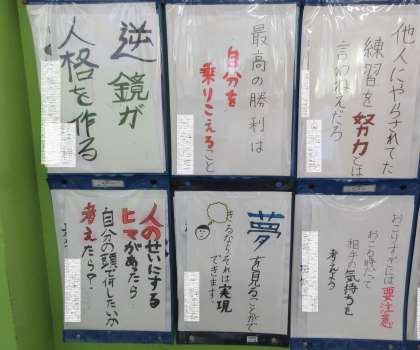 他人にやらされてた
練習を努力とは
言わねえだろ
最高の勝利は
自分を
乗りこえること
逆鏡が
人格を作る
おこりすぎには要注意
おこる時だって
相手の気持ちを
考えよう
夢を見ることが
できるならそれは実現
できます。
人のせいにする
ヒマがあったら
自分の頭で何したいか
考えたら?